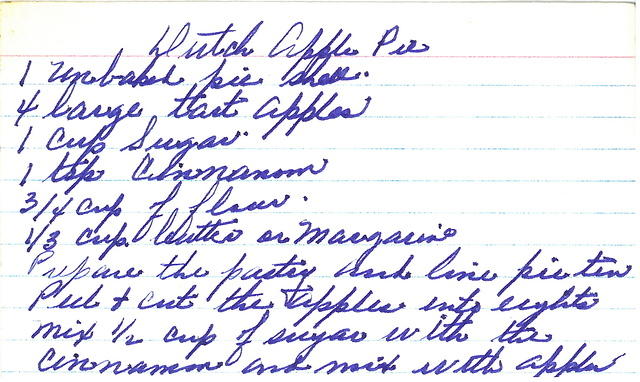 Dutch Apple Pie
1 unbaked pie shell.
4 large tart apples
1 cup Sugar.
1 tsp Cinnamom
3/4 cup of flour.
1/3 cup butter or Margarine
Prepare the pastry and line pie tin
Peel + cut the apples into eights
mix 1/2 cup of sugar with the
Cinnamom and mix with apples